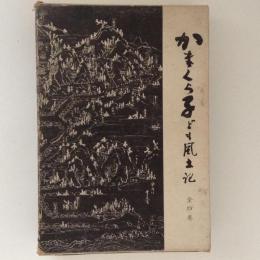 かまくら子ども風土記
全四巻